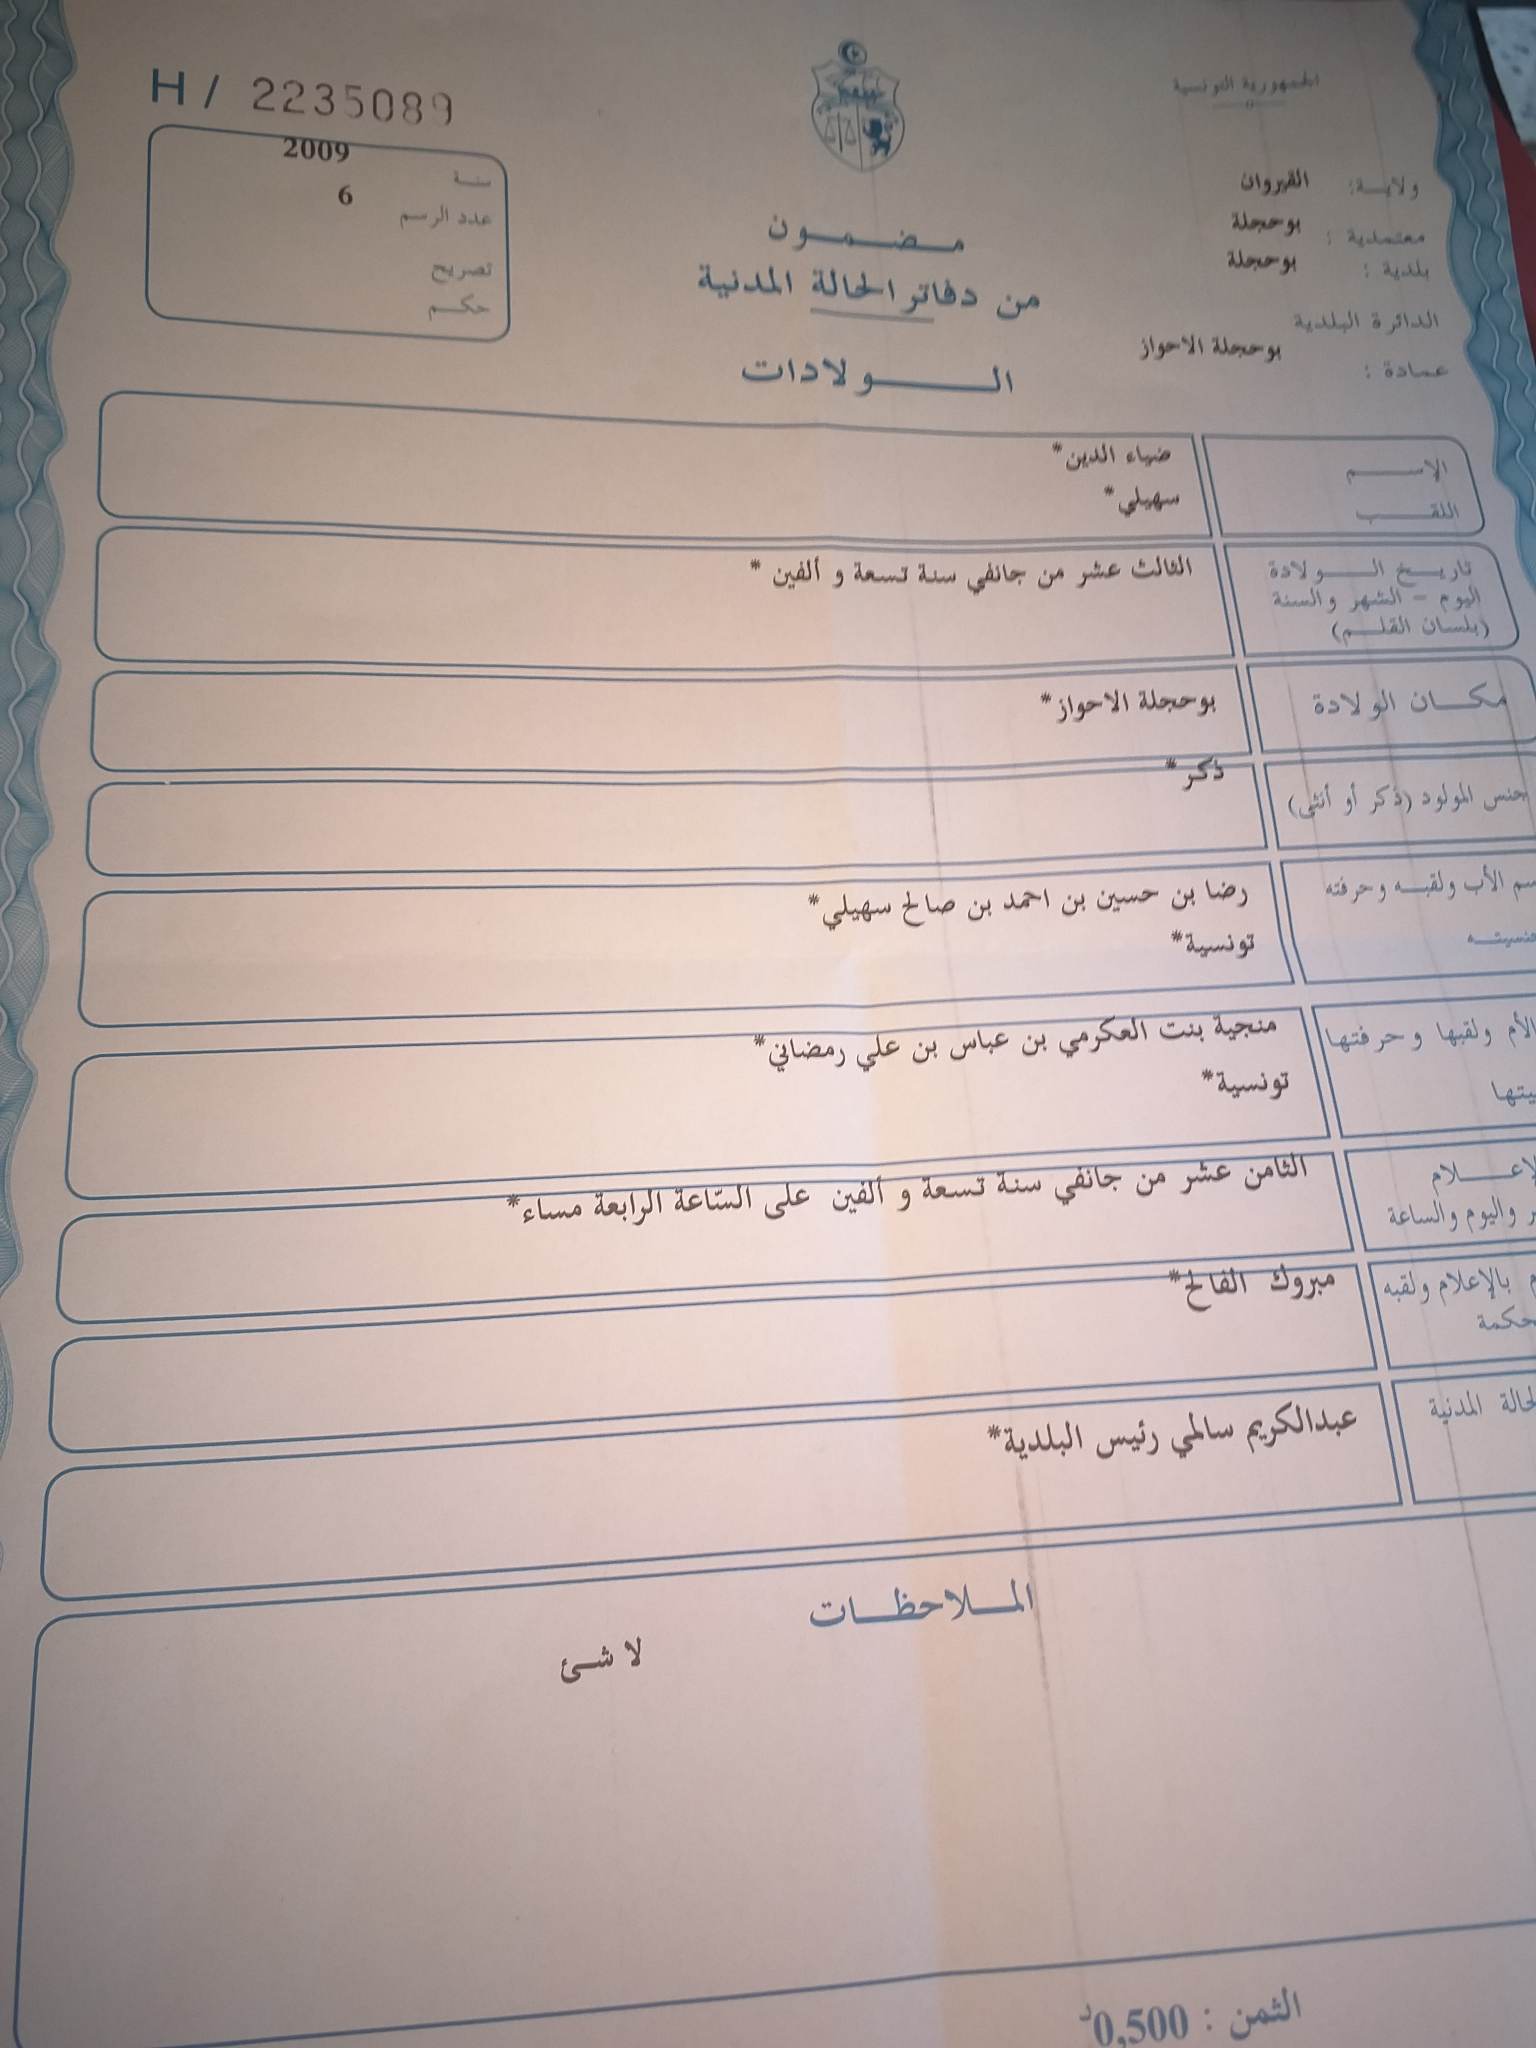 H / 2235089
الجمهورية التونسية
سنة 2009
عدد الرسم 6
تصريح
حكم
ولاية: القيروان
معتمدية : بوحجلة
بلدية : بوحجلة
الدائرة البلدية
عمادة : بوحجلة الاحواز
مضمون
من دفاتر الحالة المدنية
الولادات
الإسم ضياء الدين*
اللقب سهيلي*
تاريخ الولادة الثالث عشر من جانفي سنة تسعة و ألفين *
اليوم - الشهر والسنة
(بلسان القلم)
مكان الولادة بوحجلة الاحواز*
جنس المولود (ذكر أو أنثى) ذكر*
سم الأب ولقبه وحرفته رضا بن حسين بن احمد بن صالح سهيلي*
نسيته تونسية*
الأم ولقبها وحرفتها منجية بنت العكرمي بن عباس بن علي رمضاني*
يتها تونسية*
لإعلام الثامن عشر من جانفي سنة تسعة و ألفين على السّاعة الرابعة مساء*
ر واليوم والساعة
م بالإعلام ولقبه مبروك الفالح*
حكمة
لحالة المدنية عبدالكريم سالمي رئيس البلدية*
الملاحظات
لا شئ
الثمن : 0,500د